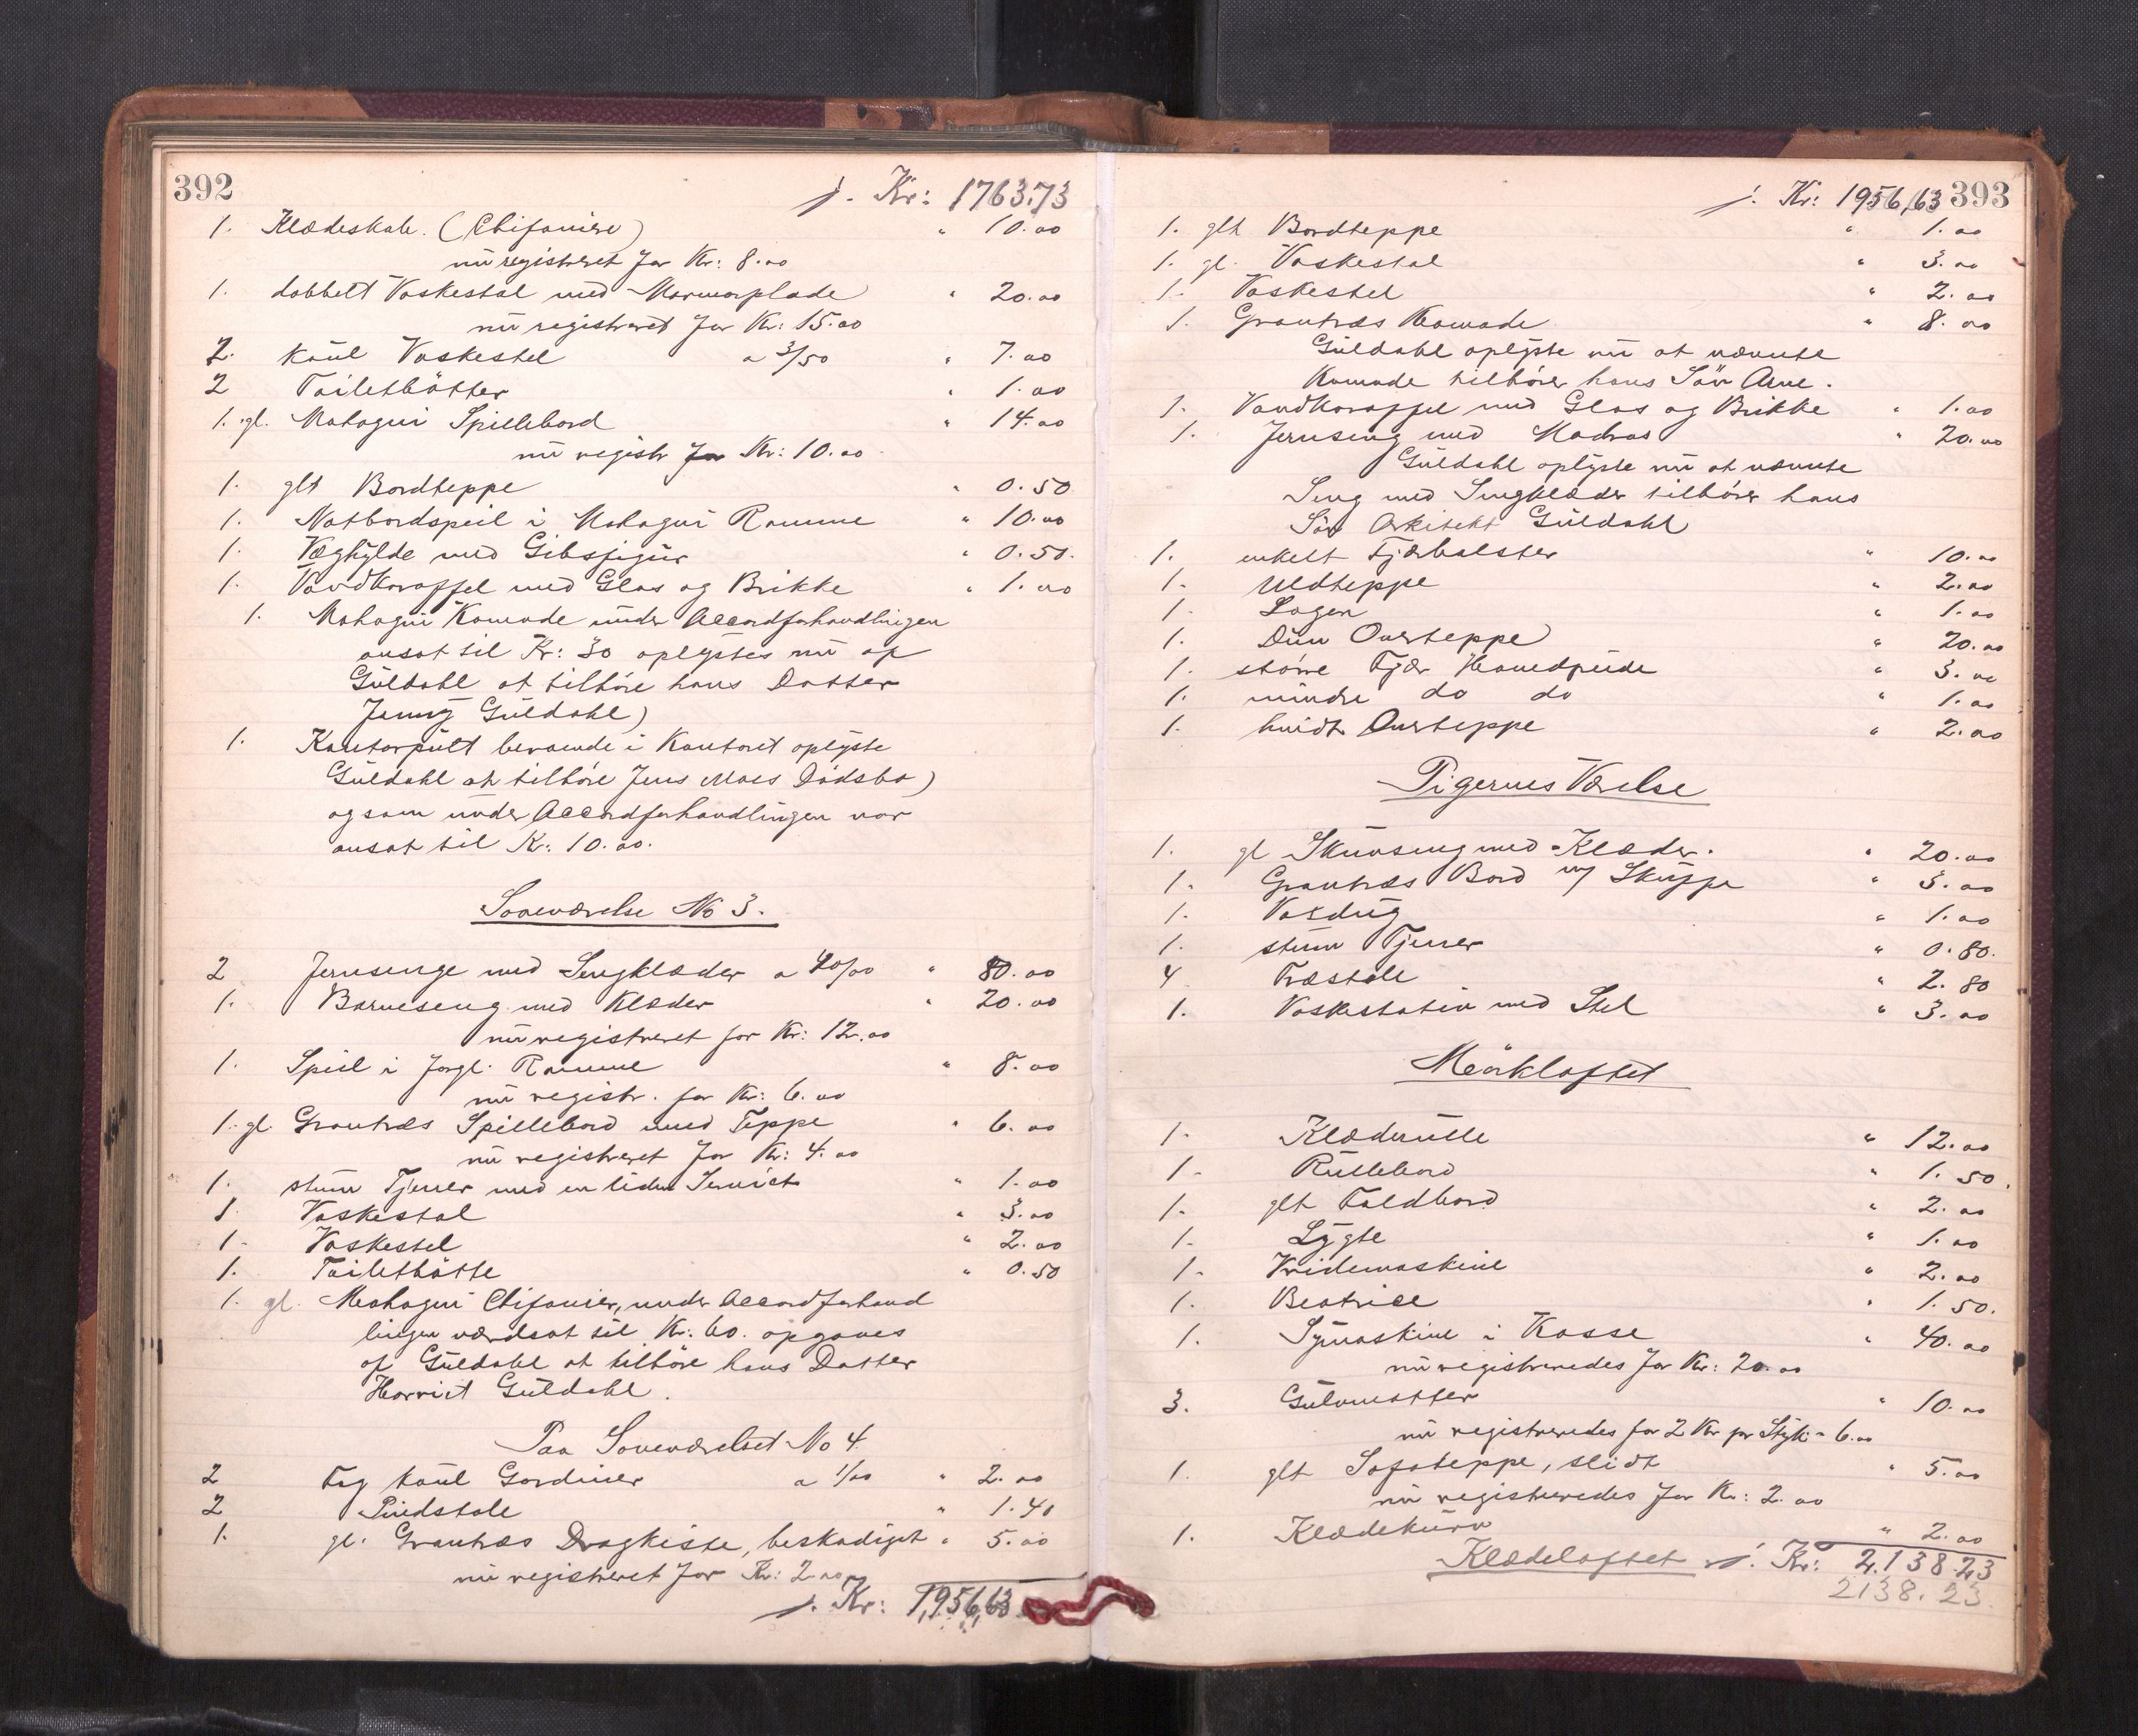 392
f. Kr: 1763.73
1. Klædeskab. (Chifoniere) " 10.00
nu registreret for Kr: 8.00
1. dobbelt Vaskestol med Marmorplade " 20.00
nu registreret for Kr: 15.00
2. Koul Vaskestel a 3/50 " 7.00
2 Toiletbötter " 1.00
1. gl. Mahogni Spillebord " 14.00
nu registr for Kr: 10.00
1. glt Bordteppe " 0.50
1. Natbordspeil i Mahogni Ramme " 10.00
1. Væghylde med Gibsfigur " 0.50.
1. Vandkaraffel med Glas og Brikke " 1.00
1. Mahogni Komode under Accordforhandlingen
ansat til Kr: 30 oplystes nu af
Güldahl at tilhöre hans Datter
Jenny Güldahl)
1. Kontorpult beroende i Kontoret oplyste
Güldahl at tilhöre Jens Moes Dödsbo)
og som under Accordforhandlingen var
ansat til Kr: 10.00.
Soveværelse No 3.
2 Jernsenge med Sengklæder a 40/00 " 80.00
1. Barneseng med Klæder " 20.00
nu registreret for Kr: 12.00
1. Speil i forgl. Ramme " 8.00
nu registr. for Kr: 6.00
1. gl. Grantræs Spillebord med Teppe " 6.00
nu registreret for Kr: 4.00
1. stum Tjener med en liden Serviet " 1.00
1 Vaskestol " 3.00
1. Vaskestel " 2.00
1. Toiletbötte " 0.50
1. gl. Mahogni Chifonier, under Accordforhand
lingen værdsat til Kr: 60. opgaves
af Güldahl at tilhöre hans Datter
Harriet Güldahl.
Paa Soveværelset No 4.
2 Fag koul Gardiner a 1/00 " 2.00
2 Pindstole " 1.40
1. gl. Grantræs Dragkiste, beskadiget " 5.00
nu registreret for Kr: 2.00
f. Kr: 1,956,63
393
f. Kr: 1956,63
1. glt Bordteppe " 1.00
1. gl. Vaskestol " 3.00
1. Vaskestel " 2.00
1. Grantræs Komode " 8.00
Güldahl oplyste nu at nævnte
Komode tilhörer hans Sön Arne.
1. Vandkaraffel med Glas og Brikke " 1.00
1. Jernseng med Madras " 20.00
Güldahl oplyste nu at nævnte
Seng med Sengklæder tilhörer hans
Sön Arkitekt Güldahl
1. enkelt Fjærbolster " 10.00
1. Uldteppe " 2.00
1. Lagen " 1.00
1. Dun Overteppe " 20.00
1. större Fjær Hovedpude " 3.00
1. mindre do do " 1.00
1. hvidt Overteppe " 2.00
Pigernes Værelse
1. gl Skuvseng med Klæder. " 20.00
1. Grantræs Bord m/ Skuffe " 3.00
1. Voxdug " 1.00
1. stum Tjener " 0.80.
4 Træstole " 2.80
1. Vaskestativ med Stel " 3.00
Mörkloftet
1. Klæderulle " 12.00
1. Rullebord " 1.50.
1. glt Foldbord " 2.00
1. Lygte " 1.00
1. Vridemaskine " 2.00
1. Beatrice " 1.50.
1. Symaskine i Kasse " 40.00
nu registreredes for Kr: 20.00
3. Gulvmatter " 10.00
nu registreredes for 2 Kr pr Styk = 6.00
1. glt Sofateppe, slidt " 5.00
nu registreredes for Kr: 2.00
1. Klædekurv " 2.00
Klædeloftet f. Kr: 2.138.23
2138.23